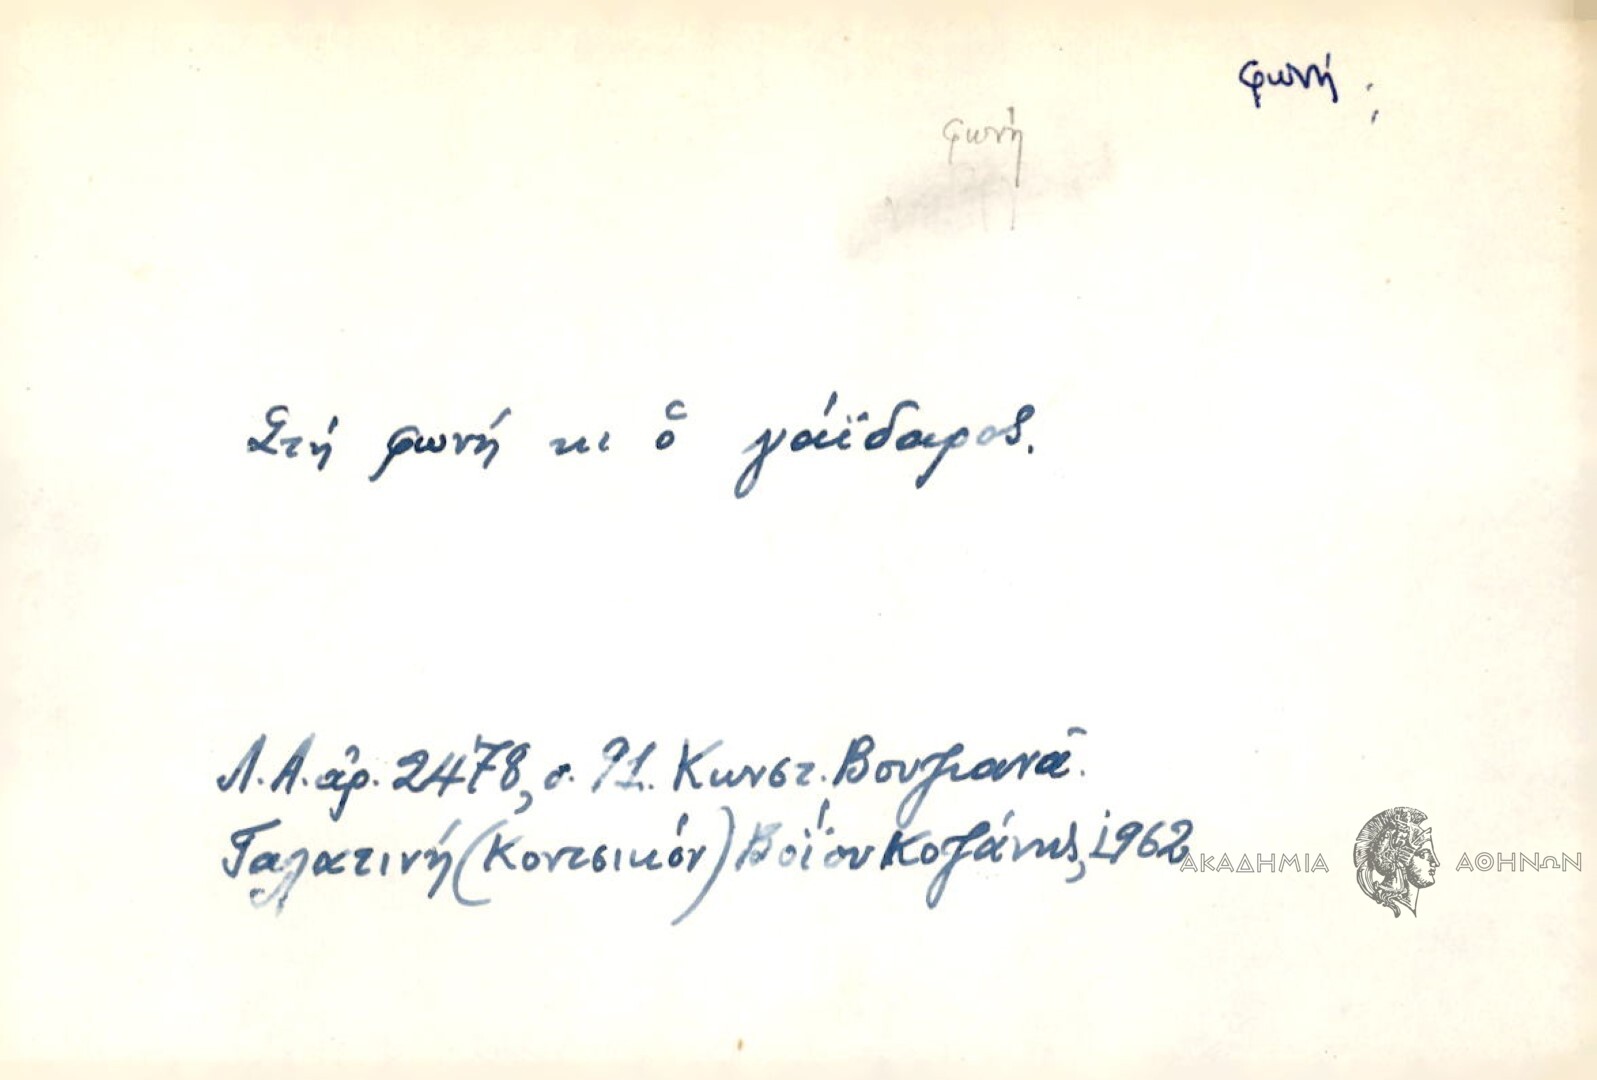 φωνή ;
φωνή
Στή φωνή κι ὁ γάϊδαρος.
Λ.Α. ἀρ. 2478, σ. 91. Κωνστ. Βουζιανᾶ.
Γαλατινή (Κοντσικόν) Βοΐου Κοζάνης, 1962
ΑΚΑΔΗΜΙΑ ΑΘΗΝΩΝ